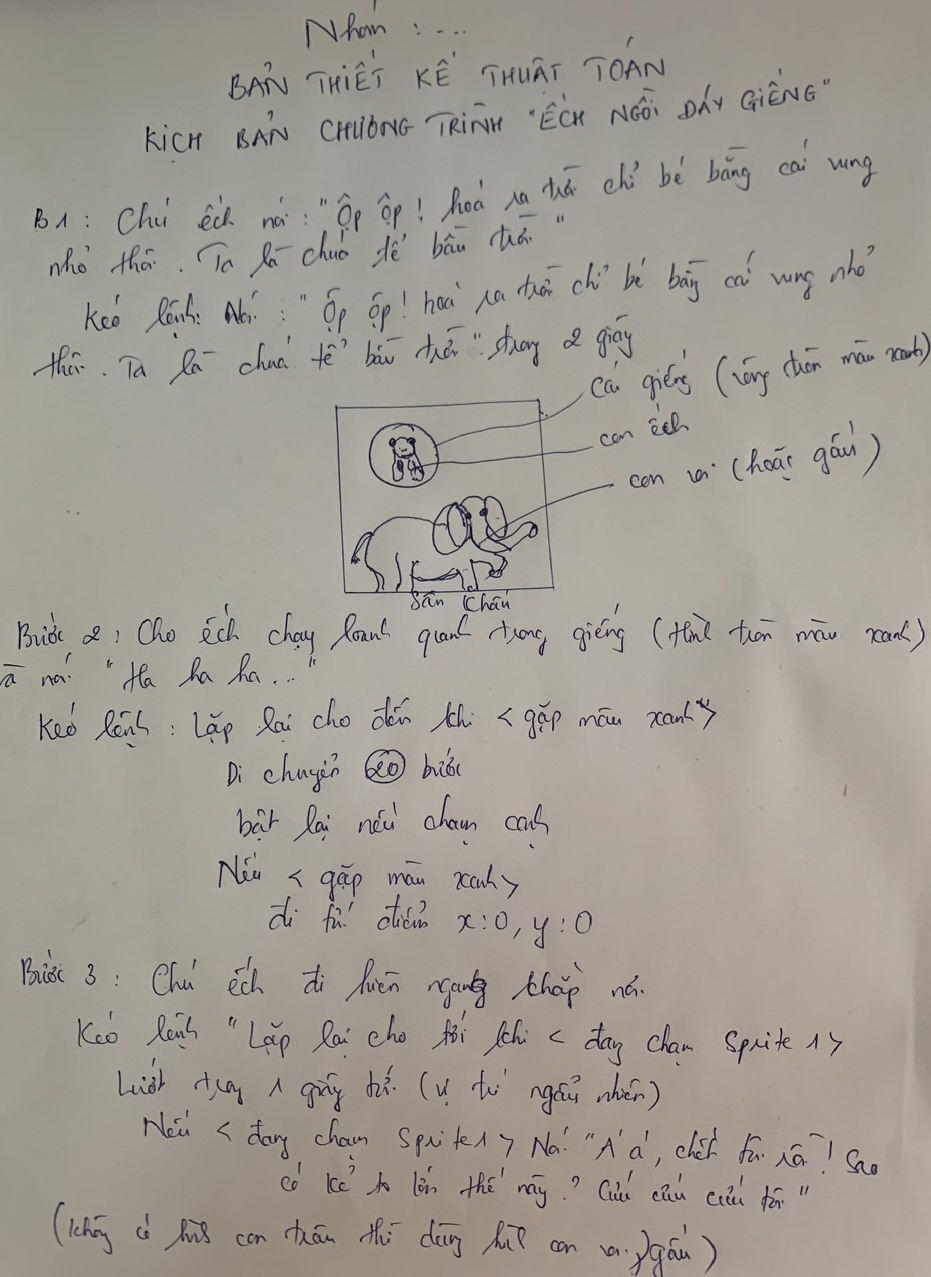 Nhóm : ...
BẢN THIẾT KẾ THUẬT TOÁN
KỊCH BẢN CHƯƠNG TRÌNH "ẾCH NGỒI ĐÁY GIẾNG"
B1 : Chú ếch nói : "Ộp ộp ! hoá ra trời chỉ bé bằng cái vung
nhỏ thôi . Ta là chúa tể bầu trời "
Kéo lệnh: Nói : " Ộp ộp ! hoá ra trời chỉ bé bằng cái vung nhỏ
thôi . Ta là chúa tể bầu trời " trong 2 giây
Cái giếng (vòng tròn màu xanh)
con ếch
con voi (hoặc gấu)
Sân Khấu
Bước 2 : Cho ếch chạy loanh quanh trong giếng (Hình tròn màu xanh)
à nói "Ha ha ha ... "
Kéo lệnh : Lặp lại cho đến khi < gặp màu xanh >
Di chuyển 20 bước
bật lại nếu chạm cạnh
Nếu < gặp màu xanh >
đi tới điểm x : 0, y : 0
Bước 3 : Chú ếch đi huênh ngang khắp nơi.
Kéo lệnh "Lặp lại cho tới khi < đang chạm Sprite 1 >
Lướt trong 1 giây tới (vị trí ngẫu nhiên)
Nếu < đang chạm Sprite 1 > Nói "Á á, chết tôi rồi ! Sao
có kẻ to lớn thế này ? Cứu cứu cứu tôi "
(không có hình con trâu thì dùng hình con voi, gấu)